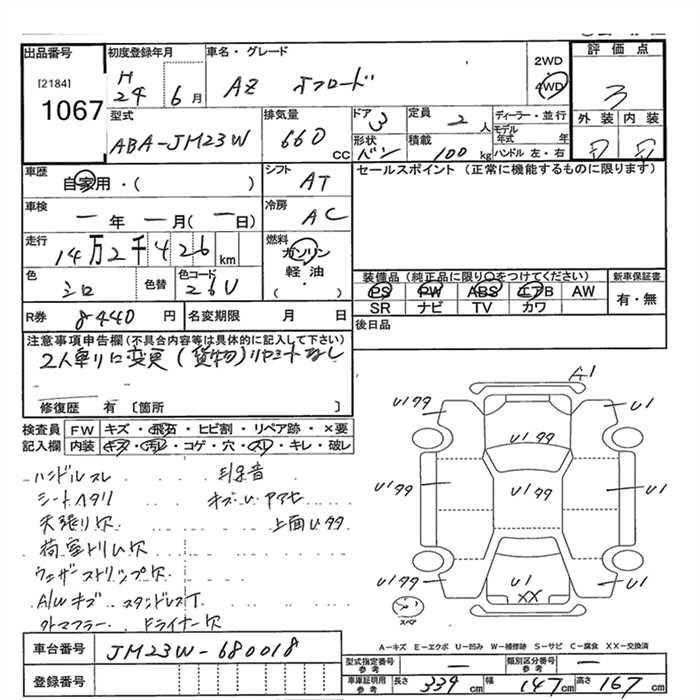 出品番号 初度登録年月 車名・グレード 2WD 4WD 評価点
[2184] 1067 H 24 6月 AZ オフロード 3
型式 排気量 ドア 3 定員 2人 ディーラー・並行 外装 内装
ABA-JM23W 660CC 形状 バン 積載 100kg モデル年式 年 ハンドル 左・右 D D
車歴 自家用・( ) シフト AT セールスポイント(正常に機能するものに限ります)
車検 一年一月(一日) 冷房 AC
走行 14万2千426km 燃料 ガソリン 軽油・( )
色 シロ 色替 色コード 26U 装備品(純正品に限り○をつけてください) 新車保証書
PS PW ABS エアB AW 有・無
SR ナビ TV カワ
R券 8440円 名変期限 月 日 後日品
注意事項申告欄(不具合内容等は具体的に記入して下さい)
2人乗りに変更(貨物)リヤシートなし
修復歴 有〔箇所 〕
検査員 FW キズ・飛石・ヒビ割・リペア跡・×要
記入欄 内装 キズ・汚れ・コゲ・穴・スレ・キレ・破レ
ハンドルスレ
シートヘタリ キズUアアセ
天張り穴 上面U99
荷室トリム穴
ウェザーストリップ穴
A/Wキズ
外マフラー ドライナー穴
A1
U199 U1
U199
U199 U199 U1
U199 U1 XX U1
スペア
A-キズ E-エクボ U-凹み W-補修跡 S-サビ C-腐食 XX-交換済
車台番号 JM23W-680018 型式指定番号 参考 一 類別区分番号 参考 一
登録番号 車庫証明用 参考 長さ 339cm 幅 147cm 高さ 167cm